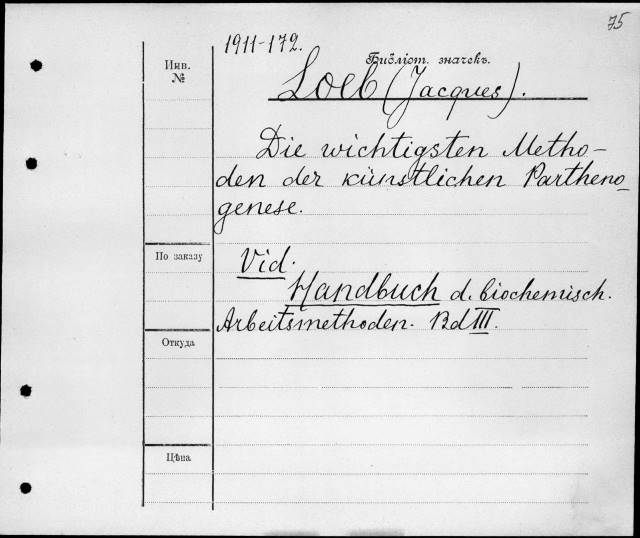 75
1911-172.
Инв.
№
Библіот. значекъ.
Loeb (Jacques).
Die wichtigsten Metho-
den der künstlichen Partheno-
genese.
По заказу
Vid.
Handbuch d. biochemisch.
Arbeitsmethoden. Bd III.
Откуда
Цѣна